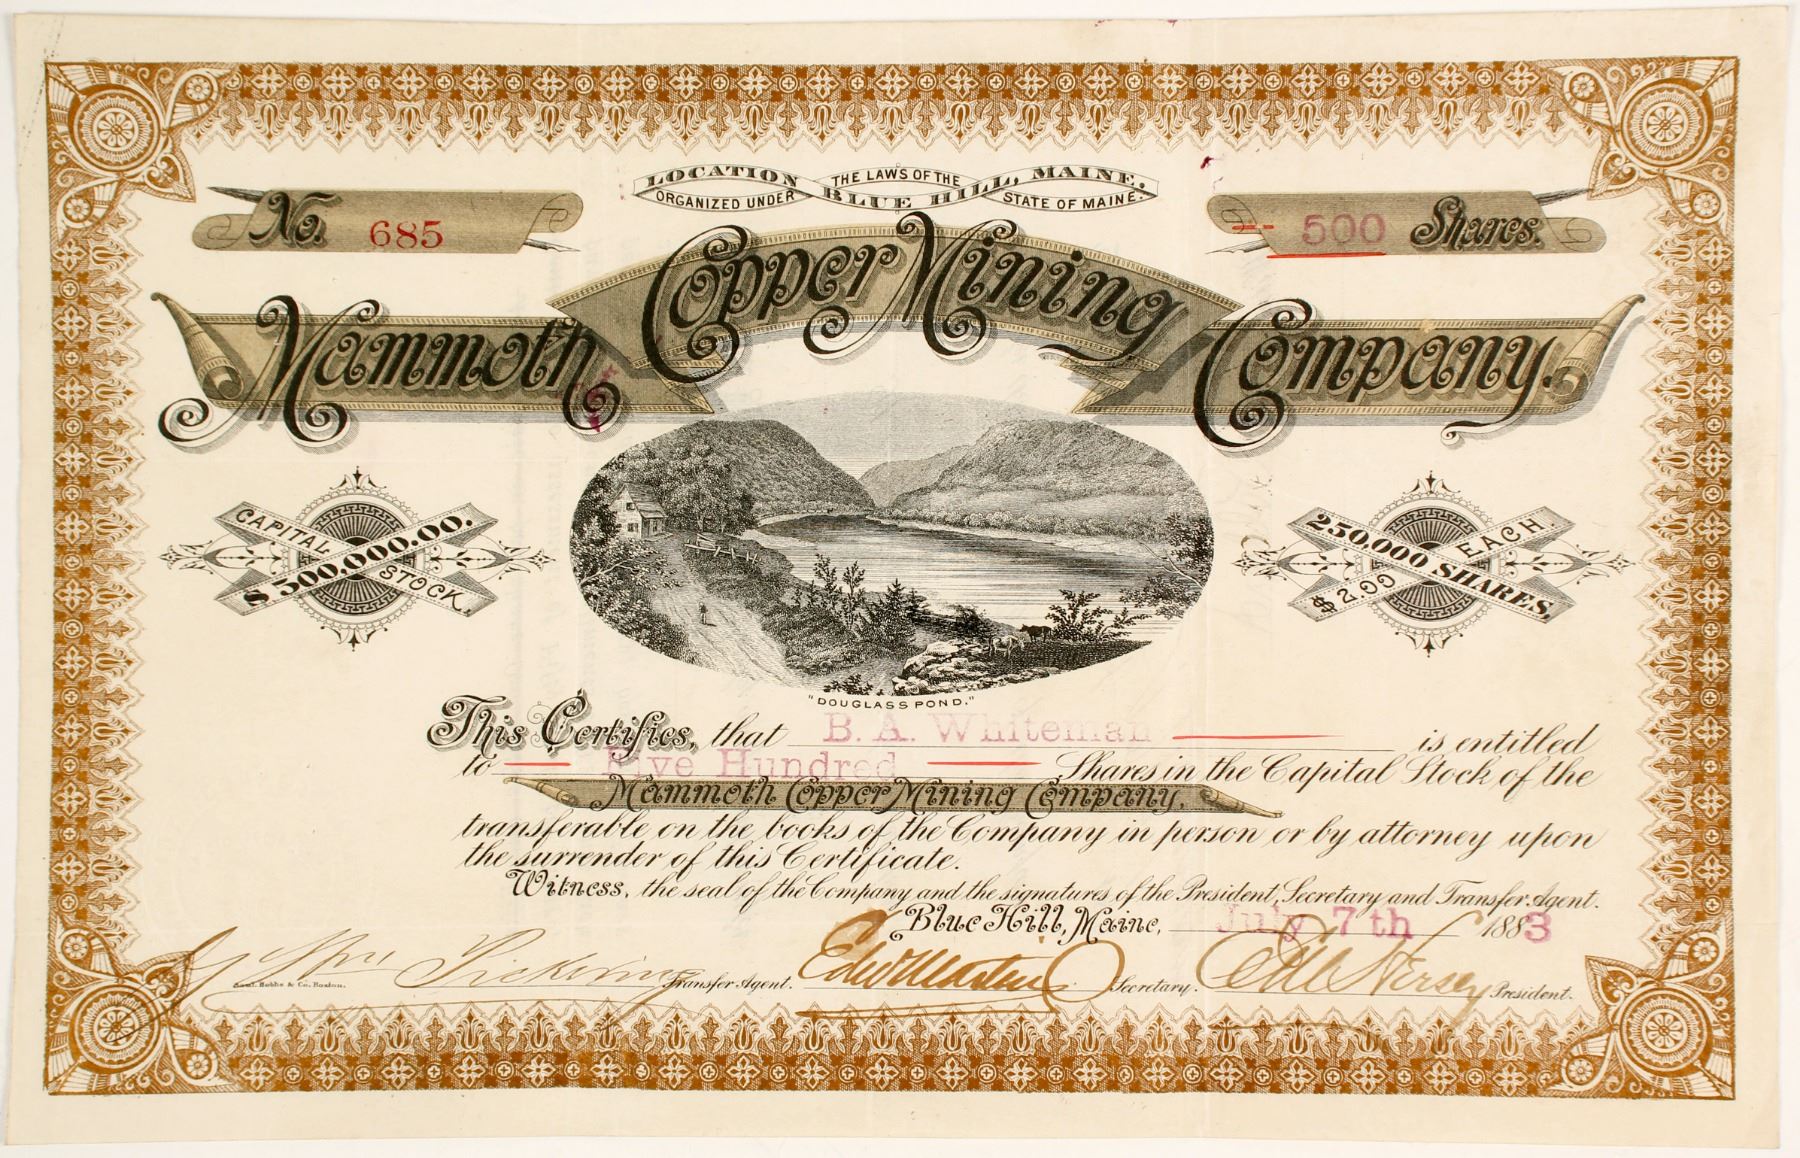 LOCATION BLUE HILL, MAINE.
ORGANIZED UNDER THE LAWS OF THE STATE OF MAINE.
No. 685
500 Shares.
Mammoth Copper Mining Company.
CAPITAL STOCK
$500,000.00.
250,000 SHARES,
$2.00 EACH.
"DOUGLASS POND."
This Certifies, that B. A. Whiteman is entitled
to Five Hundred Shares in the Capital Stock of the
Mammoth Copper Mining Company,
transferable on the books of the Company in person or by attorney upon
the surrender of this Certificate.
Witness, the seal of the Company and the signatures of the President, Secretary and Transfer Agent.
Blue Hill, Maine, July 7th 1883
Wm Pickering Transfer Agent. Secretary. Hersey President.
Saml. Hobbs & Co. Boston.